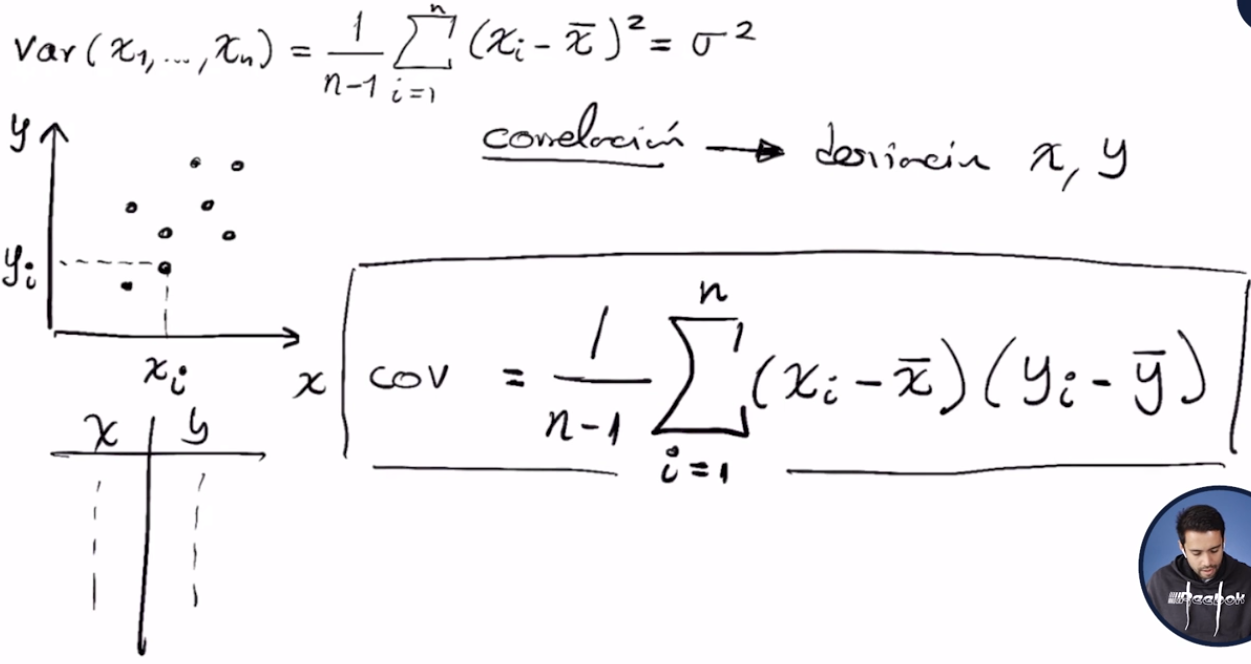 Var(x₁,...,xₙ) = 1/(n-1) Σ_{i=1}^{n} (xᵢ - x̄)² = σ²
correlación → desviación x, y
y
yᵢ
xᵢ
x
cov = 1/(n-1) Σ_{i=1}^{n} (xᵢ - x̄)(yᵢ - ȳ)
x | y
Reebok